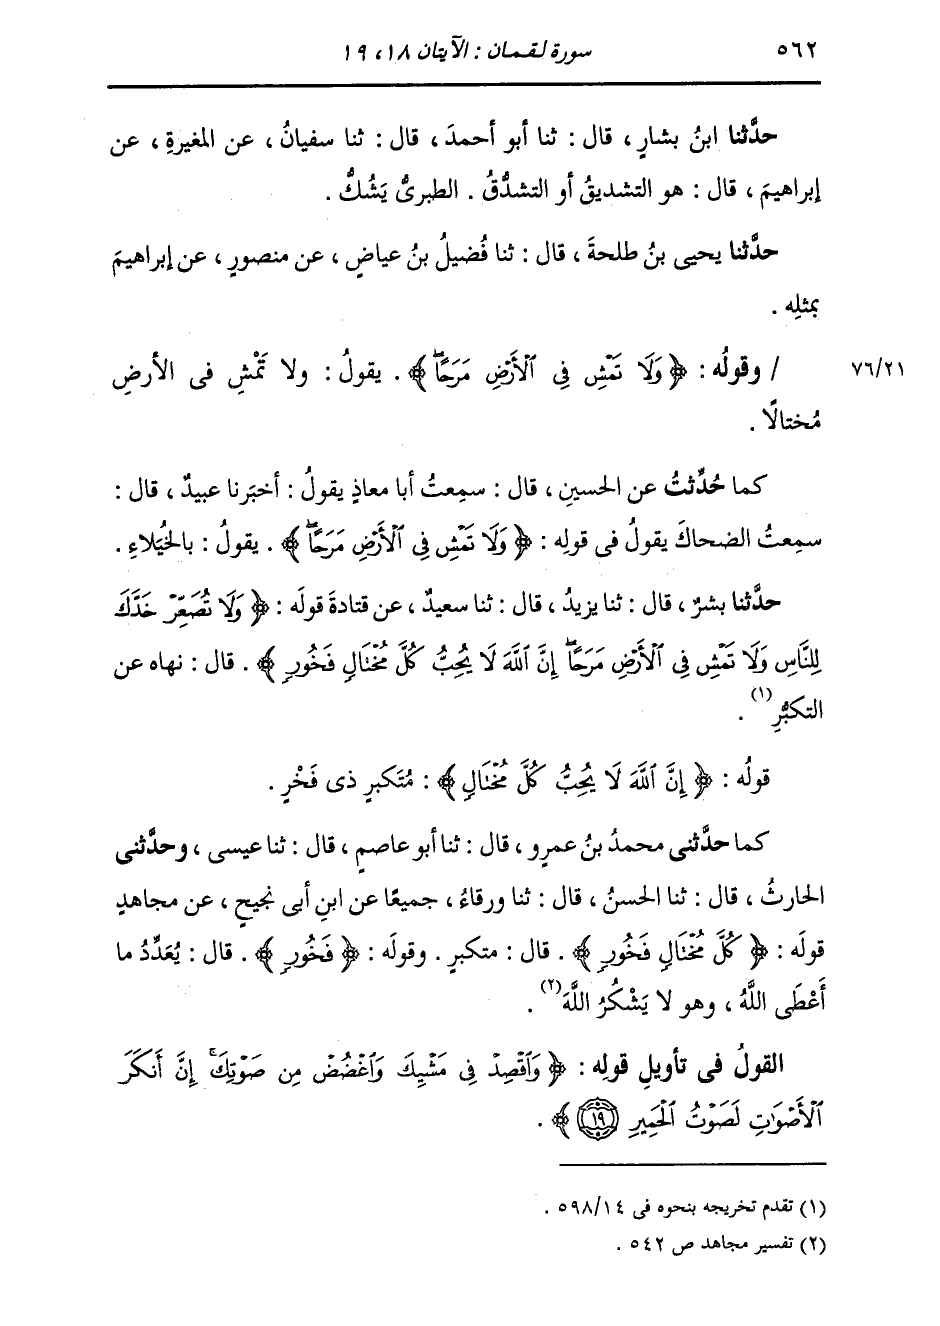 ٥٦٢ سورة لقمان : الآيتان ١٨ ، ١٩
حدَّثنا ابنُ بشارٍ ، قال : ثنا أبو أحمدَ ، قال : ثنا سفيانُ ، عن المغيرةِ ، عن
إبراهيمَ ، قال : هو التشديقُ أو التشدُّقُ . الطبرىُّ يَشُكُّ .
حدَّثنا يحيى بنُ طلحةَ ، قال : ثنا فُضيلُ بنُ عياضٍ ، عن منصورٍ ، عن إبراهيمَ
بمثلِه .
٧٦/٢١ / وقولُه : ﴿وَلَا تَمْشِ فِي ٱلْأَرْضِ مَرَحًاۖ﴾ . يقولُ : ولا تَمْشِ فى الأرضِ
مُختالًا .
كما حُدِّثتُ عن الحسينِ ، قال : سمِعتُ أبا معاذٍ يقولُ : أخبَرنا عبيدٌ ، قال :
سمِعتُ الضحاكَ يقولُ فى قولِه : ﴿وَلَا تَمْشِ فِي ٱلْأَرْضِ مَرَحًاۖ﴾ . يقولُ : بالخُيَلاءِ .
حدَّثنا بشرٌ ، قال : ثنا يزيدُ ، قال : ثنا سعيدٌ ، عن قتادةَ قولَه : ﴿وَلَا تُصَعِّرْ خَدَّكَ
لِلنَّاسِ وَلَا تَمْشِ فِي ٱلْأَرْضِ مَرَحًاۖ إِنَّ ٱللَّهَ لَا يُحِبُّ كُلَّ مُخْتَالٍ فَخُورٍ﴾ . قال : نهاه عن
التكبُّرِ(١) .
قولُه : ﴿إِنَّ ٱللَّهَ لَا يُحِبُّ كُلَّ مُخْتَالٍ﴾ : مُتَكبرٍ ذى فَخْرٍ .
كما حدَّثنى محمدُ بنُ عمرٍو ، قال : ثنا أبو عاصمٍ ، قال : ثنا عيسى ، وحدَّثنى
الحارثُ ، قال : ثنا الحسنُ ، قال : ثنا ورقاءُ ، جميعًا عن ابنِ أبى نجيحٍ ، عن مجاهدٍ
قولَه : ﴿كُلَّ مُخْتَالٍ فَخُورٍ﴾ . قال : متكبرٍ . وقولَه : ﴿فَخُورٍ﴾ . قال : يُعَدِّدُ ما
أَعْطَى اللَّهُ ، وهو لا يَشْكُرُ اللَّهَ(٢) .
القولُ فى تأويلِ قولِه : ﴿وَٱقْصِدْ فِى مَشْيِكَ وَٱغْضُضْ مِن صَوْتِكَۚ إِنَّ أَنكَرَ
ٱلْأَصْوَٰتِ لَصَوْتُ ٱلْحَمِيرِ ١٩﴾ .
(١) تقدم تخريجه بنحوه فى ٥٩٨/١٤ .
(٢) تفسير مجاهد ص ٥٤٢ .